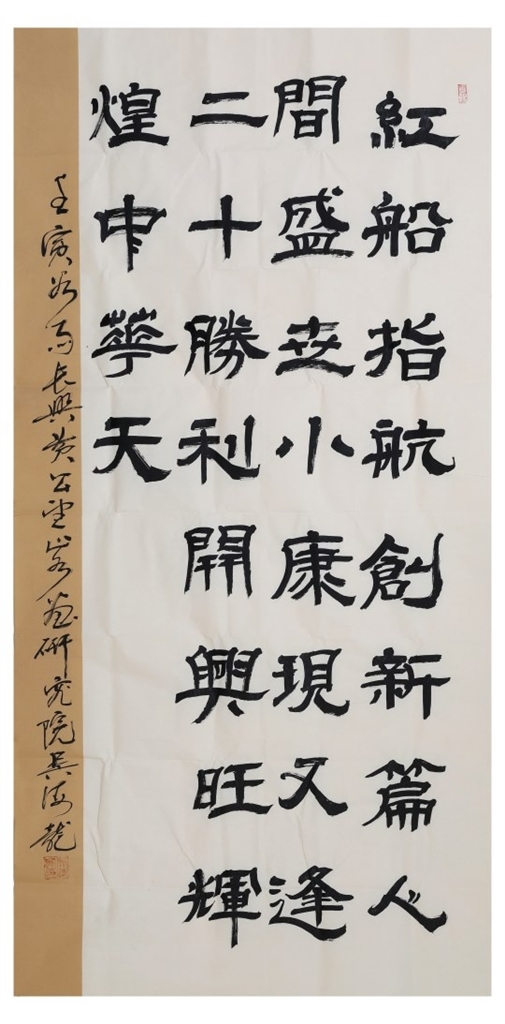 紅船指航創新篇人
間盛世小康現又逢
二十勝利開興旺輝
煌中華天
壬寅書於長興黃公望書畫研究院吳海龍